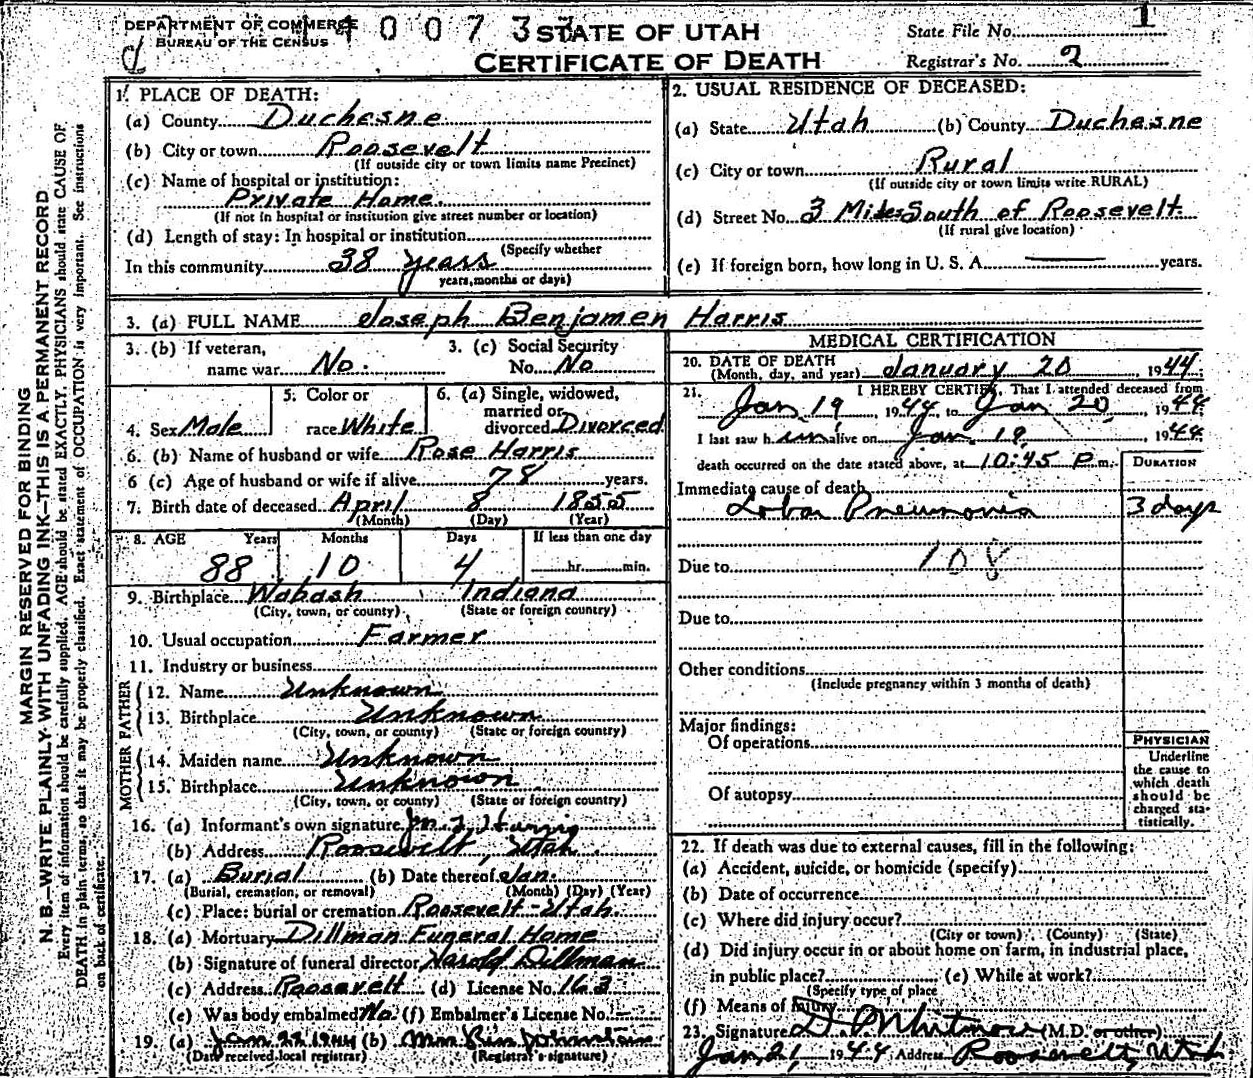 DEPARTMENT OF COMMERCE
BUREAU OF THE CENSUS
4 0 0 7 3
STATE OF UTAH
CERTIFICATE OF DEATH
State File No. 1
Registrar's No. 2
MARGIN RESERVED FOR BINDING
N. B.—WRITE PLAINLY WITH UNFADING INK—THIS IS A PERMANENT RECORD
Every item of information should be carefully supplied. AGE should be stated EXACTLY. PHYSICIANS should state CAUSE OF
DEATH in plain terms, so that it may be properly classified. Exact statement of OCCUPATION is very important. See instructions
on back of certificate.
1. PLACE OF DEATH:
(a) County Duchesne
(b) City or town Roosevelt
(If outside city or town limits name Precinct)
(c) Name of hospital or institution:
Private Home.
(If not in hospital or institution give street number or location)
(d) Length of stay: In hospital or institution
(Specify whether
In this community 38 years
years, months or days)
2. USUAL RESIDENCE OF DECEASED:
(a) State Utah (b) County Duchesne
(c) City or town Rural
(If outside city or town limits write RURAL)
(d) Street No. 3 Miles South of Roosevelt.
(If rural give location)
(e) If foreign born, how long in U. S. A. — years.
3. (a) FULL NAME Joseph Benjamen Harris
3. (b) If veteran, 3. (c) Social Security
name war No. No. No
4. Sex Male
5. Color or
race White
6. (a) Single, widowed,
married or
divorced Divorced
6. (b) Name of husband or wife Rose Harris
6 (c) Age of husband or wife if alive 78 years.
7. Birth date of deceased April 8 1855
(Month) (Day) (Year)
8. AGE Years Months Days If less than one day
88 10 4 hr. min.
9. Birthplace Wabash Indiana
(City, town, or county) (State or foreign country)
10. Usual occupation Farmer
11. Industry or business
FATHER
12. Name Unknown
13. Birthplace Unknown
(City, town, or county) (State or foreign country)
MOTHER
14. Maiden name Unknown
15. Birthplace Unknown
(City, town, or county) (State or foreign country)
16. (a) Informant's own signature
(b) Address Roosevelt, Utah.
17. (a) Burial (b) Date thereof Jan.
(Burial, cremation, or removal) (Month) (Day) (Year)
(c) Place: burial or cremation Roosevelt - Utah.
18. (a) Mortuary Dillman Funeral Home
(b) Signature of funeral director Harold Dillman
(c) Address Roosevelt (d) License No. 163
(e) Was body embalmed? No. (f) Embalmer's License No.
19. (a) Jan 22 1944 (b)
(Date received local registrar) (Registrar's signature)
MEDICAL CERTIFICATION
20. DATE OF DEATH
(Month, day, and year) January 20 1944
21. I HEREBY CERTIFY, That I attended deceased from
Jan 19, 1944 to Jan 20, 1944
I last saw him alive on Jan. 19, 1944
death occurred on the date stated above, at 10:45 P.m.
DURATION
Immediate cause of death
Lobar Pneumonia 3 days
108
Due to
Due to
Other conditions
(Include pregnancy within 3 months of death)
Major findings:
Of operations
Of autopsy
PHYSICIAN
Underline
the cause to
which death
should be
charged sta-
tistically.
22. If death was due to external causes, fill in the following:
(a) Accident, suicide, or homicide (specify)
(b) Date of occurrence
(c) Where did injury occur?
(City or town) (County) (State)
(d) Did injury occur in or about home on farm, in industrial place,
in public place? (e) While at work?
(Specify type of place
(f) Means of injury
23. Signature D. P. Whitmore (M.D. or other)
Jan. 21, 1944 Address Roosevelt, Utah